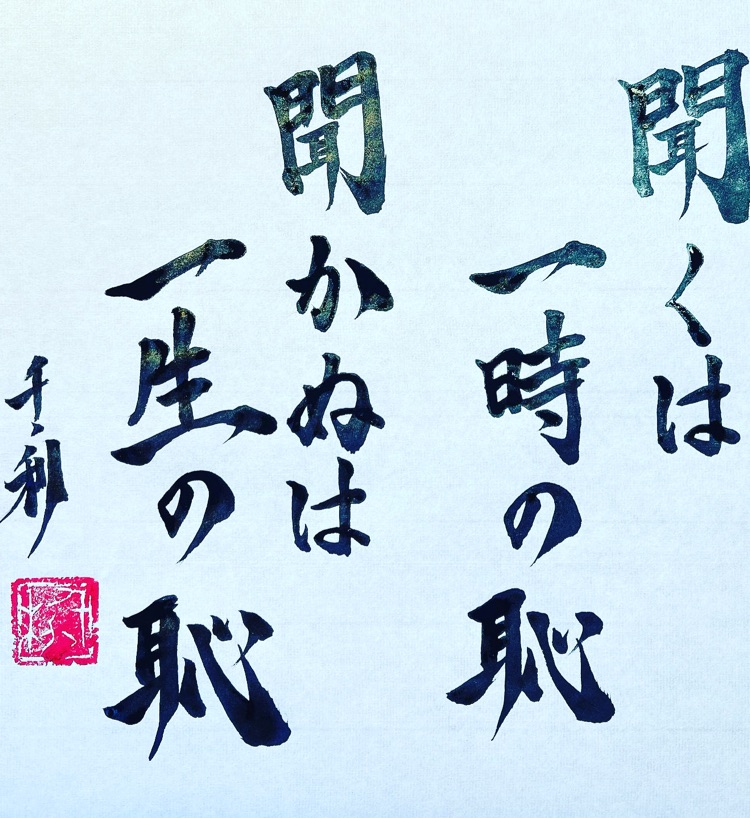 聞くは
一時の恥
聞かぬは
一生の恥
千利